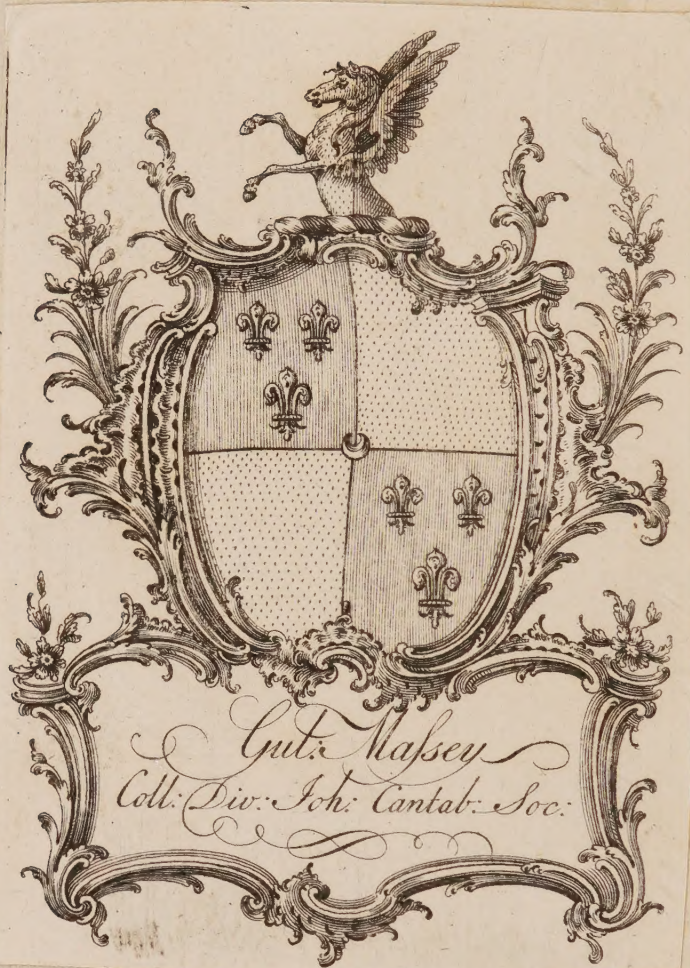 Gul: Maſsey
Coll: Div: Joh: Cantab: Soc: